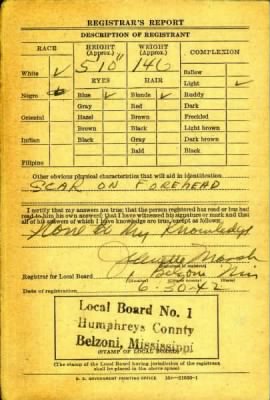 REGISTRAR'S REPORT
DESCRIPTION OF REGISTRANT
RACE HEIGHT (Approx.) WEIGHT (Approx.) COMPLEXION
5 10" 146
White ✓ Sallow
EYES HAIR Light ✓
Negro Blue ✓ Blonde ✓ Ruddy
Gray Red Dark
Oriental Hazel Brown Freckled
Brown Black Light brown
Indian Black Gray Dark brown
Bald Black
Filipino
Other obvious physical characteristics that will aid in identification
SCAR ON FOREHEAD
I certify that my answers are true; that the person registered has read or has had
read to him his own answers; that I have witnessed his signature or mark and that
all of his answers of which I have knowledge are true, except as follows:
None to my Knowledge
Marsh
(Signature of registrar)
Registrar for Local Board 1 Belzoni Miss
Date of registration 6-30-42
Local Board No. 1
Humphreys County
Belzoni, Mississippi
(STAMP OF LOCAL BOARD)
(The stamp of the Local Board having jurisdiction of the registrant
shall be placed in the above space)
U. S. GOVERNMENT PRINTING OFFICE